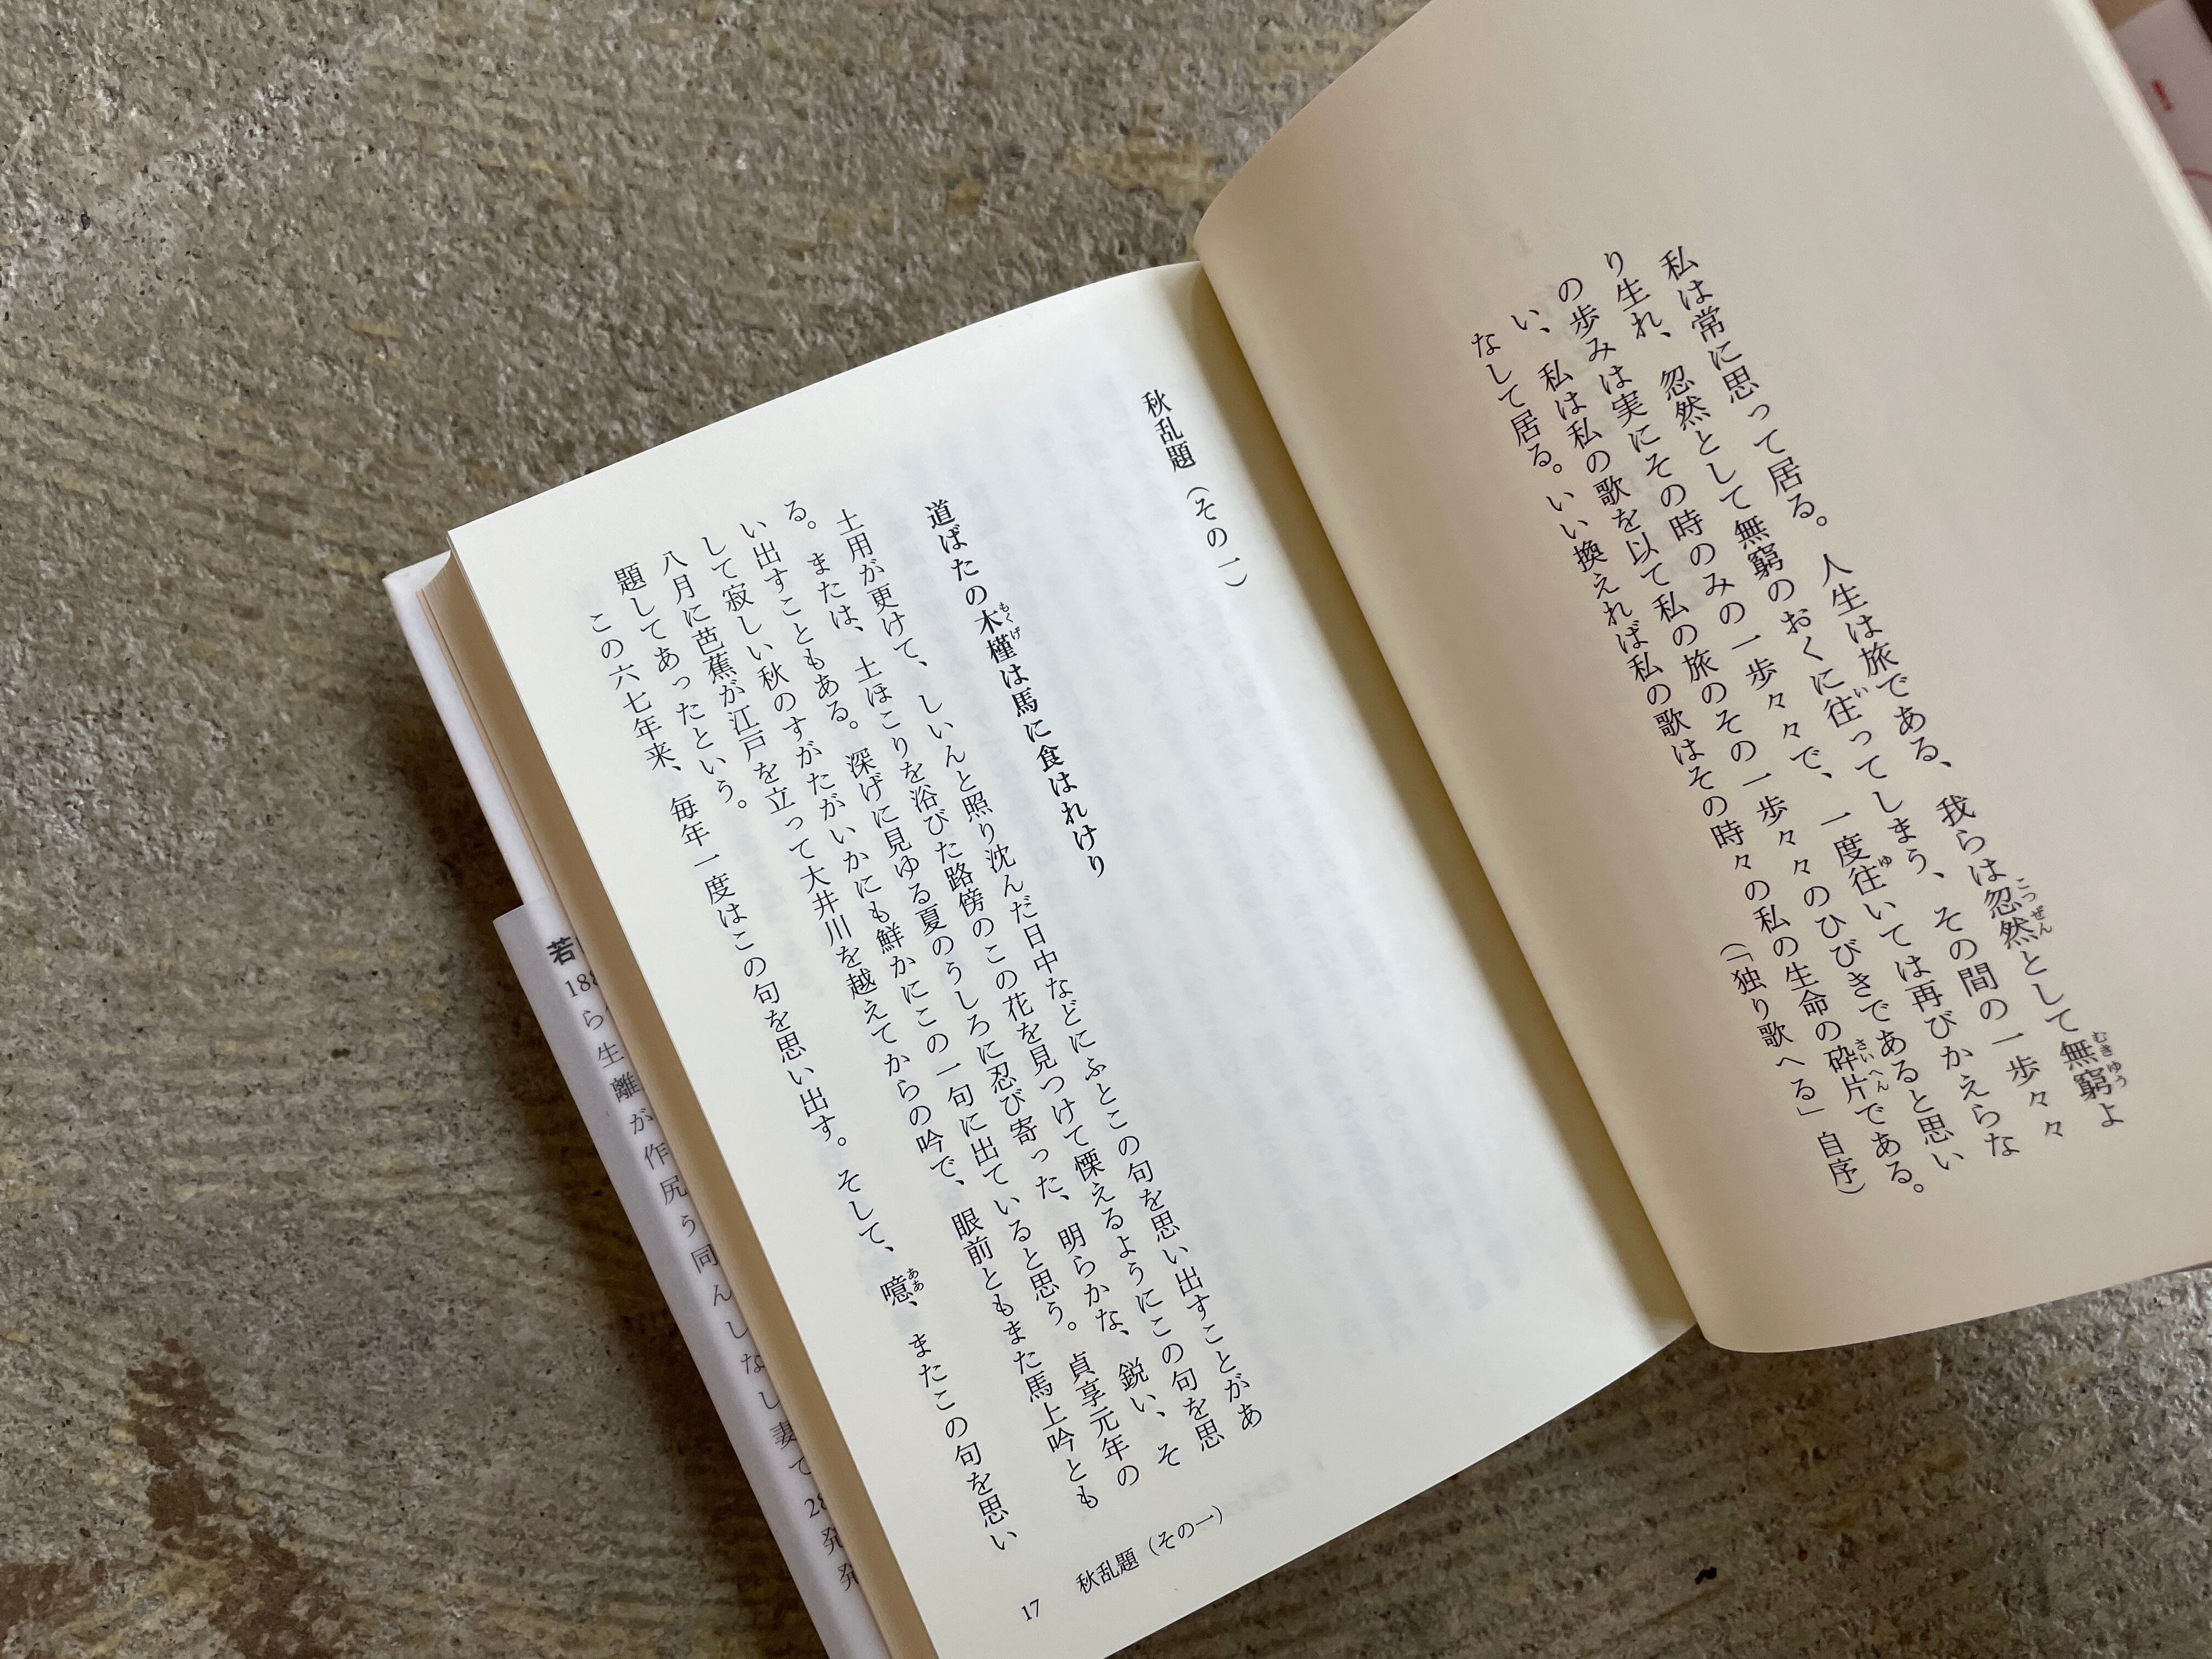 私は常に思って居る。人生は旅である、我らは忽然として無窮よ
り生れ、忽然として無窮のおくに往ってしまう、その間の一歩々々
の歩みは実にその時のみの一歩々々で、一度往いては再びかえらな
い、私は私の歌を以て私の旅のその一歩々々のひびきであると思い
なして居る。いい換えれば私の歌はその時々の私の生命の砕片である。
(「独り歌へる」自序)
秋乱題(その一)
道ばたの木槿は馬に食はれけり
土用が更けて、しいんと照り沈んだ日中などにふとこの句を思い出すことがあ
る。または、土ほこりを浴びた路傍のこの花を見つけて慄えるようにこの句を思
い出すこともある。深げに見ゆる夏のうしろに忍び寄った、明らかな、鋭い、そ
して寂しい秋のすがたがいかにも鮮かにこの一句に出ていると思う。貞享元年の
八月に芭蕉が江戸を立って大井川を越えてからの吟で、眼前ともまた馬上吟とも
題してあったという。
この六七年来、毎年一度はこの句を思い出す。そして、噫、またこの句を思い
秋乱題(その一)
17
若
188
ら
生
離
が
作
尻
う
同
ん
し
な
し
妻
て
28
発
発